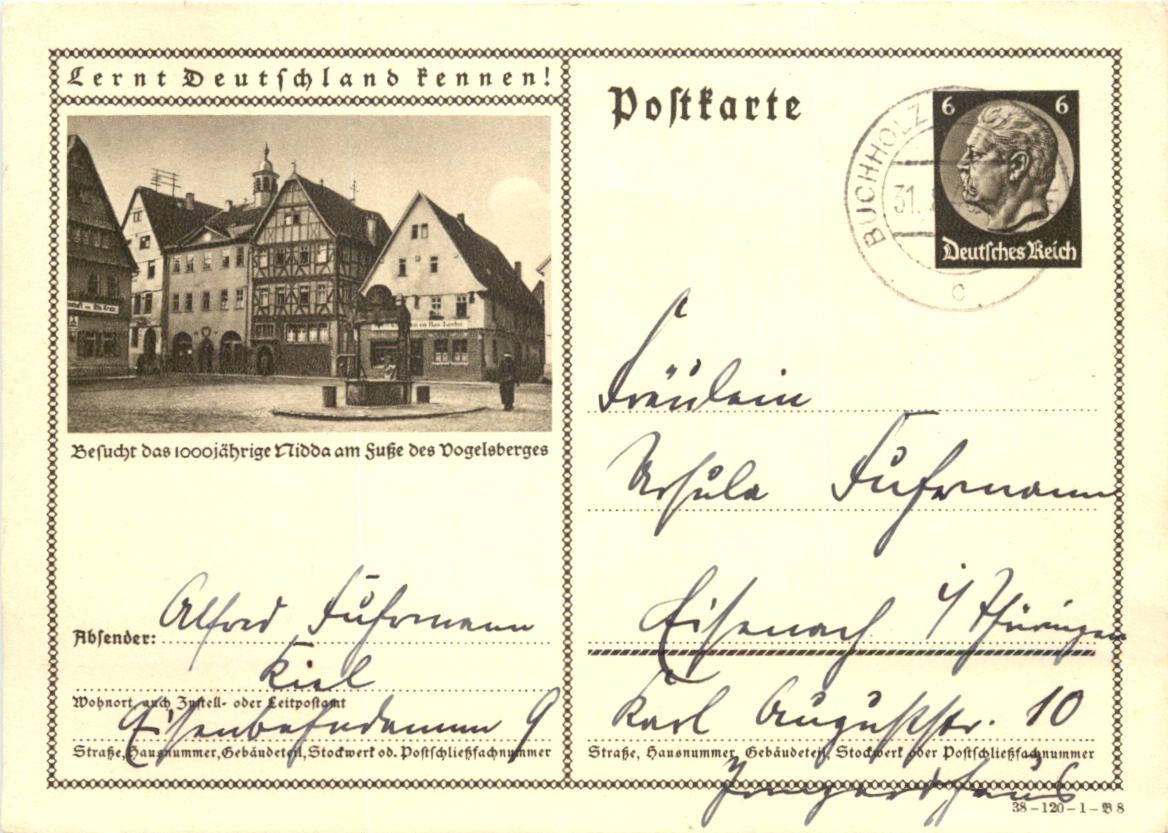 Lernt Deutschland kennen!
Besucht das 1000jährige Nidda am Fuße des Vogelsberges
Absender: Alfred Fuhrmann
Kiel
Wohnort, auch Zustell- oder Leitpostamt
Eisenbahndamm 9
Straße, Hausnummer, Gebäudeteil, Stockwerk od. Postschließfachnummer
Postkarte
BUCHHOLZ
31.
c
6 6
Deutsches Reich
Fräulein
Ursula Fuhrmann
Eisenach i/Thüringen
Karl Auguststr. 10
Straße, Hausnummer, Gebäudeteil, Stockwerk oder Postschließfachnummer
Irmgardhaus
38-120-1-B8